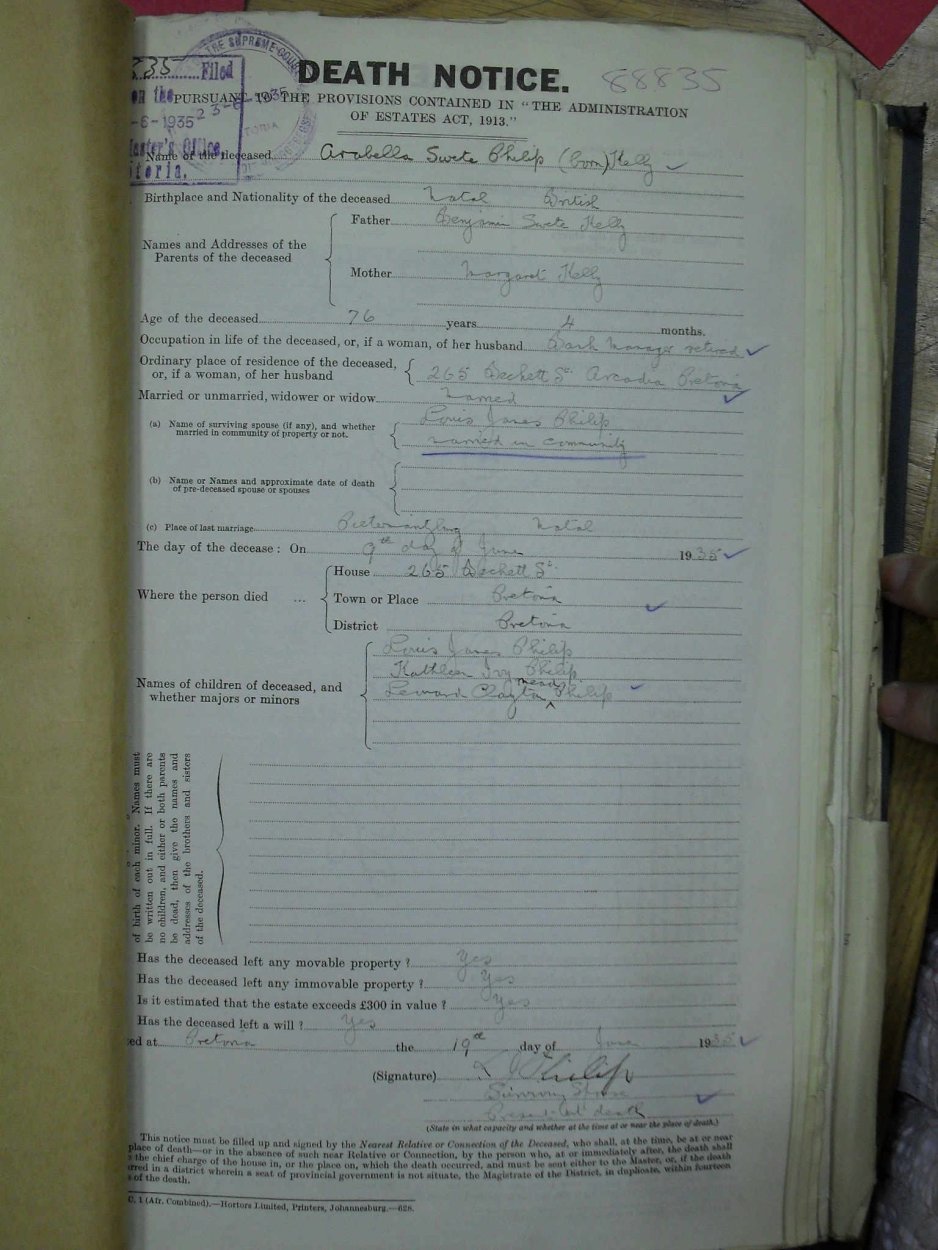 THE SUPREME COURT
335 Filed
on the
-6-1935
Master's Office,
DEATH NOTICE. 88835
PURSUANT TO THE PROVISIONS CONTAINED IN "THE ADMINISTRATION
OF ESTATES ACT, 1913."
Name of the deceased Arabella Swete Philip (born) Kelly
Birthplace and Nationality of the deceased Natal British
Names and Addresses of the Parents of the deceased
Father Benjamin Swete Kelly
Mother Margaret Kelly
Age of the deceased 76 years 4 months.
Occupation in life of the deceased, or, if a woman, of her husband Bank Manager retired
Ordinary place of residence of the deceased,
or, if a woman, of her husband
265 Beckett St. Arcadia Pretoria
Married or unmarried, widower or widow Married
(a) Name of surviving spouse (if any), and whether
married in community of property or not.
Louis James Philip
married in community
(b) Name or Names and approximate date of death
of pre-deceased spouse or spouses
(c) Place of last marriage Pietermaritzburg Natal
The day of the decease: On 9th day of June 1935
Where the person died ...
House 265 Beckett St.
Town or Place Pretoria
District Pretoria
Names of children of deceased, and
whether majors or minors
Louis James Philip
Kathleen Ivy Philip
Philip
of birth of each minor. Names must
be written out in full. If there are
no children, and either or both parents
be dead, then give the names and
addresses of the brothers and sisters
of the deceased.
Has the deceased left any movable property? Yes
Has the deceased left any immovable property? Yes
Is it estimated that the estate exceeds £300 in value? Yes
Has the deceased left a will? Yes
ed at Pretoria the 19th day of June 1935
(Signature) L J Philip
Surviving Spouse
Present at death
(State in what capacity and whether at the time at or near the place of death.)
This notice must be filled up and signed by the Nearest Relative or Connection of the Deceased, who shall, at the time, be at or near
place of death—or in the absence of such near Relative or Connection, by the person who, at or immediately after, the death shall
the chief charge of the house in, or the place on, which the death occurred, and must be sent either to the Master, or, if the death
rred in a district wherein a seat of provincial government is not situate, the Magistrate of the District, in duplicate, within fourteen
s of the death.
C. 1 (Afr. Combined).—Hortors Limited, Printers, Johannesburg.—628.